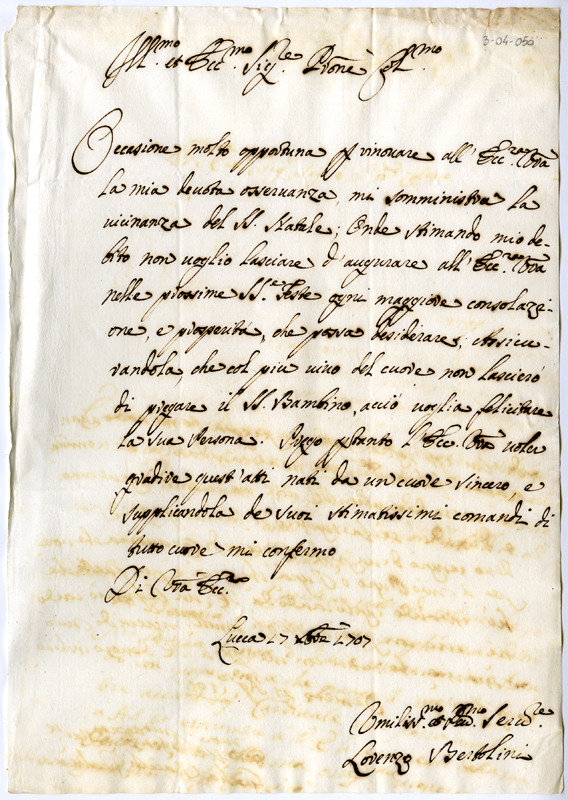 3-04-050
Ill.mo et Ecc.mo Sig.re P̃rone Col.mo
Occasione molto opportuna p rinovare all' Ecc.za Ṽra
la mia devota osservanza, mi somministra la
vicinanza del SS. Natale; Onde stimando mio de-
bito non voglio lasciare d'augurare all' Ecc.za Ṽra
nelle prossime SS.e Feste ogni maggiore consolazzi-
one, e prosperità, che possa desiderare; Assicu-
randola, che col più vivo del cuore non lascierò
di pregare il SS. Bambino, acciò voglia felicitare
la sua Persona. Prego p tanto l'Ecc. Ṽra voler
gradire quest'atti nati da un cuore sincero, e
supplicandola de suoi stimatissimi comandi di
tutto cuore mi confermo
Di Ṽra Ecc.za
Lucca 17 1707
Umiliss.mo et Serv.re
Lorenzo Bertolini